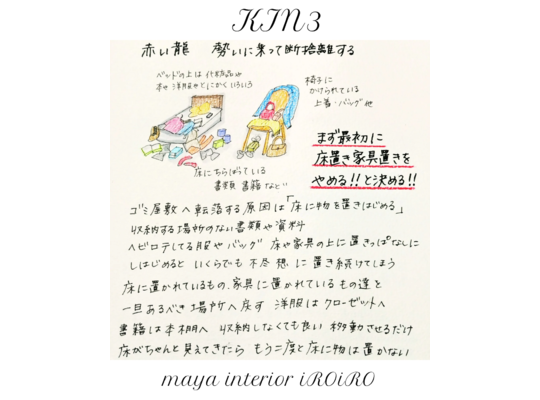 KIN3
赤い龍 勢いに乗って断捨離する
ベッドの上は化粧品や
本や洋服やとにかくいろいろ
椅子に
かけられている
上着・バッグ他
まず最初に
床置き家具置きを
やめる!!と決める!!
床にちらばっている
書類 書籍など
ゴミ屋敷へ転落する原因は「床に物を置きはじめる」
収納する場所のない書類や資料
ヘビロテしてる服やバッグ 床や家具の上に置きっぱなしに
しはじめると いくらでも 不尽 想 に 置き続けてしまう
床に置かれているもの、家具に置かれているもの達を
一旦あるべき場所へ戻す 洋服はクローゼットへ
書籍は本棚へ 収納しなくても良い 移動させるだけ
床がちゃんと見えてきたら もう二度と床に物は置かない
maya interior iROiRO